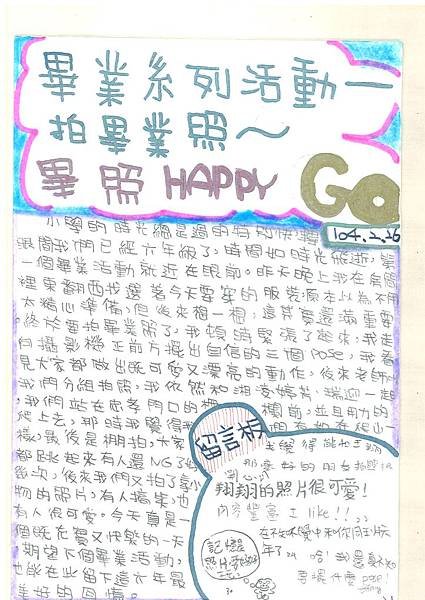 畢業系列活動一
拍畢業照～
畢照 HAPPY GO
104.2.26
小學的時光總是過的特別快,轉
眼間我們已經六年級了,時間如時光飛逝,第
一個畢業活動就近在眼前。昨天晚上我在房間
裡東翻西找選著今天要穿的服裝,原本以為不用
太精心準備,但後來想一想,這其實還滿重要
終於要拍畢業照了,我頓時緊張了起來,我走
向攝影機正前方擺出自信的三個pose,我看
見大家都做出既可愛又漂亮的動作,後來老師
我們分組拍照,我依然和
我們站在忠孝門口的 欄前,並且用力的
爬上去,那時我覺得我們
樣。最後是棚拍,大家
都跳起來有人還NG了
幾次,後來我們又拍了
物的照片,有人搞笑,也
有人很可愛。今天真是一
個既充實又快樂的一天
期望下個畢業活動,
也能在此留下這六年最
美好的回憶。
留言板
翔翔的照片很可愛!
內容豐富 I like!!
記憶
照片
在不知不覺中和你同班
年了
哈!我還真不知
要擺什麼pose!